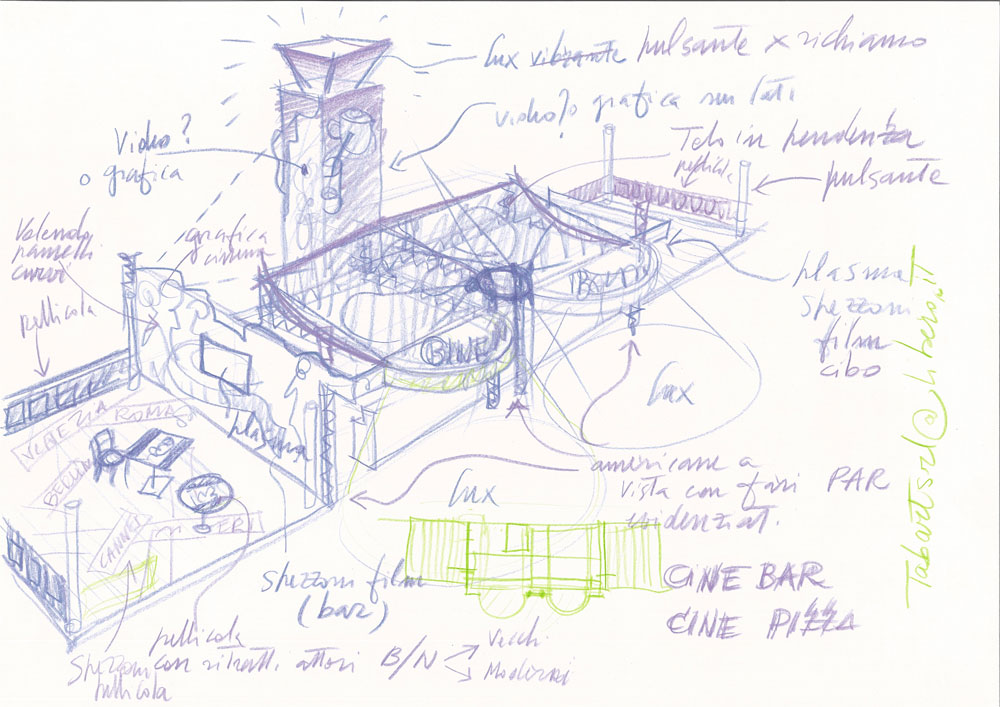 lux vibrante pulsante x richiamo
video? o grafica sui lati
Video?
o grafica
Telo in pendenza
pellicola
pulsante
Volendo
pannelli
curvi
grafica
cinema
pellicola
plasma
spezzoni
film
cibo
BAR
CINE
lux
plasma
VENEZIA ROMA
CANNES
americane a
vista con fari PAR
lux
spezzoni film
(bar)
CINE BAR
CINE PIZZA
pellicola
con ritratti attori B/N
Vecchi
Moderni
Spezzoni
pellicola